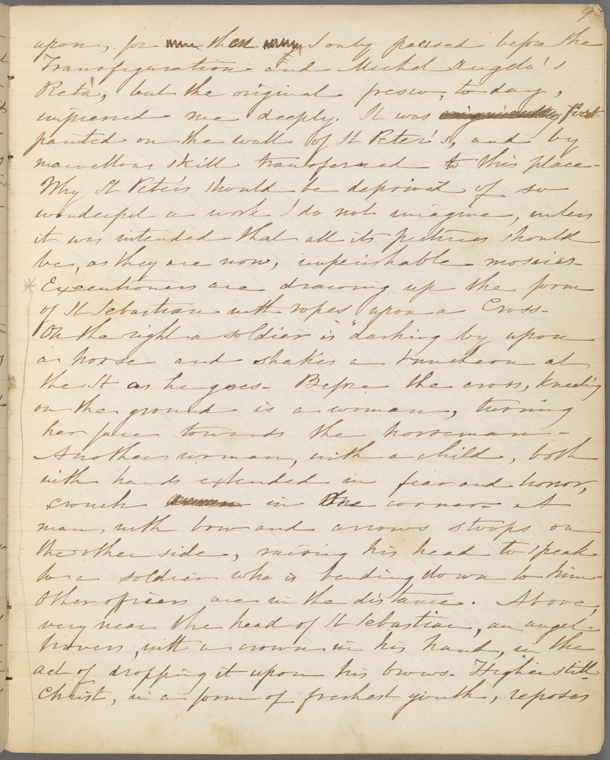 9
upon, for then I only paused before the
Transfiguration and Michel Angelo's
Pietà, but the original fresco, to day,
impressed me deeply. It was first
painted on the walls of St Peter's, and by
marvellous skill transferred to this place-
Why St Peter's should be deprived of so
wonderful a work I do not imagine, unless
it was intended that all its pictures should
be, as they are now, imperishable mosaics-
* Executioners are drawing up the form
of St Sebastian with ropes upon a Cross-
On the right a soldier is dashing by upon
a horse and shakes a truncheon at
the St as he goes- Before the cross, kneeling
on the ground is a woman, turning
her face towards the horseman-
Another woman, with a child, both
with hands extended in fear and horror,
crouch in one corner- A
man, with bow and arrows stoops on
the other side, raising his head to speak
to a soldier who is bending down to him-
Other officers are in the distance. Above,
very near the head of St Sebastian, an angel
hovers, with a crown in his hand, in the
act of dropping it upon his brows- Higher still
Christ, in a form of freshest youth, reposes